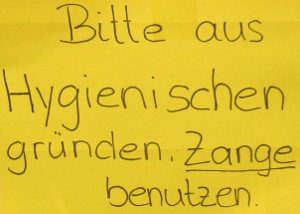 Bitte aus
Hygienischen
gründen. Zange
benutzen.